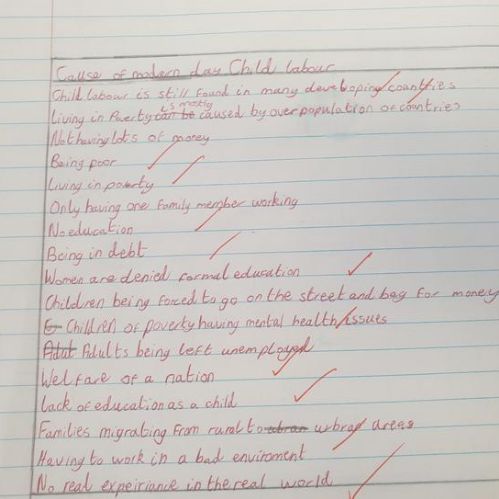 Cause of modern day Child labour
Child labour is still found in many developing countries
Living in Poverty can be is mostly caused by over population of countries
Not having lots of money
Being poor
Living in poverty
Only having one family member working
No education
Being in debt
Women are denied formal education
Children being forced to go on the street and beg for money
C Children of poverty having mental health issues
Adut Adults being left unemployed
Welfare of a nation
Lack of education as a child
Families migrating from rural to abran urbran areas
Having to work in a bad enviroment
No real expeiriance in the real world